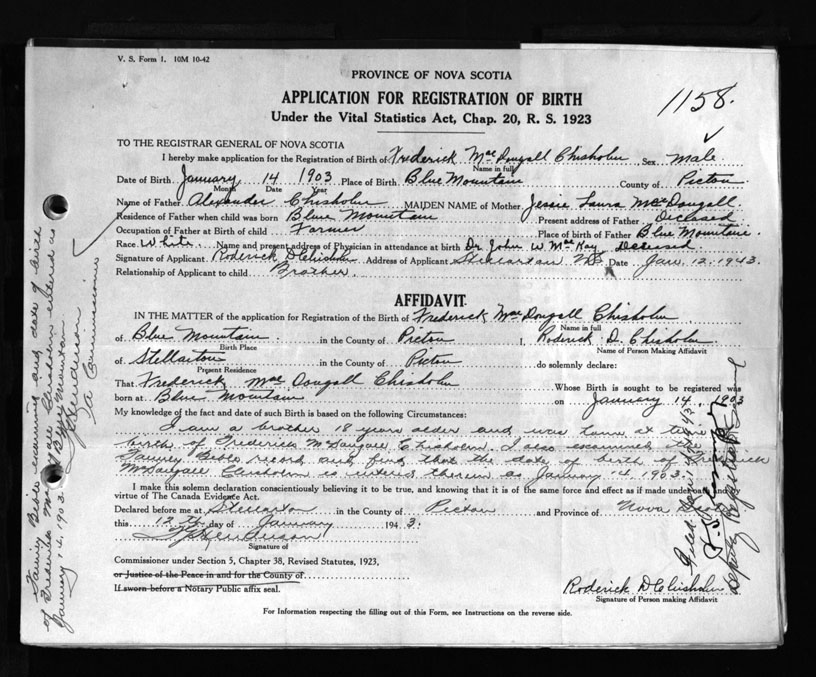 V. S. Form 1. 10M 10-42
PROVINCE OF NOVA SCOTIA
APPLICATION FOR REGISTRATION OF BIRTH
Under the Vital Statistics Act, Chap. 20, R. S. 1923
1158.
TO THE REGISTRAR GENERAL OF NOVA SCOTIA
I hereby make application for the Registration of Birth of Frederick MacDougall Chisholm Sex Male
Name in full
Date of Birth January 14 1903 Place of Birth Blue Mountain County of Pictou
Month Date Year
Name of Father Alexander Chisholm MAIDEN NAME of Mother Jessie Laura MacDougall
Residence of Father when child was born Blue Mountain Present address of Father Diceased
Occupation of Father at Birth of child Farmer Place of birth of Father Blue Mountain
Race White Name and present address of Physician in attendance at birth Dr. John W. MacKay, Deceased
Signature of Applicant Roderick D Chisholm Address of Applicant Stellarton NS Date Jan. 12. 1943.
Relationship of Applicant to child Brother.
AFFIDAVIT
IN THE MATTER of the application for Registration of the Birth of Frederick MacDougall Chisholm
Name in full
of Blue Mountain in the County of Pictou I, Roderick D. Chisholm
Birth Place Name of Person Making Affidavit
of Stellarton in the County of Pictou do solemnly declare:
Present Residence
That Frederick MacDougall Chisholm Whose Birth is sought to be registered was
born at Blue Mountain on January 14, 1903
My knowledge of the fact and date of such Birth is based on the following Circumstances:
I am a brother 18 years older and was home at time
birth of Frederick McDougall Chisholm. I also examined the
Family Bible record and find that the date of birth of Frederick
McDougall Chisholm is entered therein as January 14, 1903.
I make this solemn declaration conscientiously believing it to be true, and knowing that it is of the same force and effect as if made under oath and
virtue of The Canada Evidence Act.
Declared before me at Stellarton in the County of Pictou and Province of Nova Scotia
this 12th day of January 1943.
Henderson
Signature of
Commissioner under Section 5, Chapter 38, Revised Statutes, 1923,
or Justice of the Peace in and for the County of
If sworn before a Notary Public affix seal.
Roderick D Chisholm
Signature of Person making Affidavit
For Information respecting the filling out of this Form, see Instructions on the reverse side.
Family Bible examined and date of birth
of Frederick McDougall Chisholm entered as
January 14, 1903. Blue Mountain
Henderson
A Commissioner
Deputy Registrar